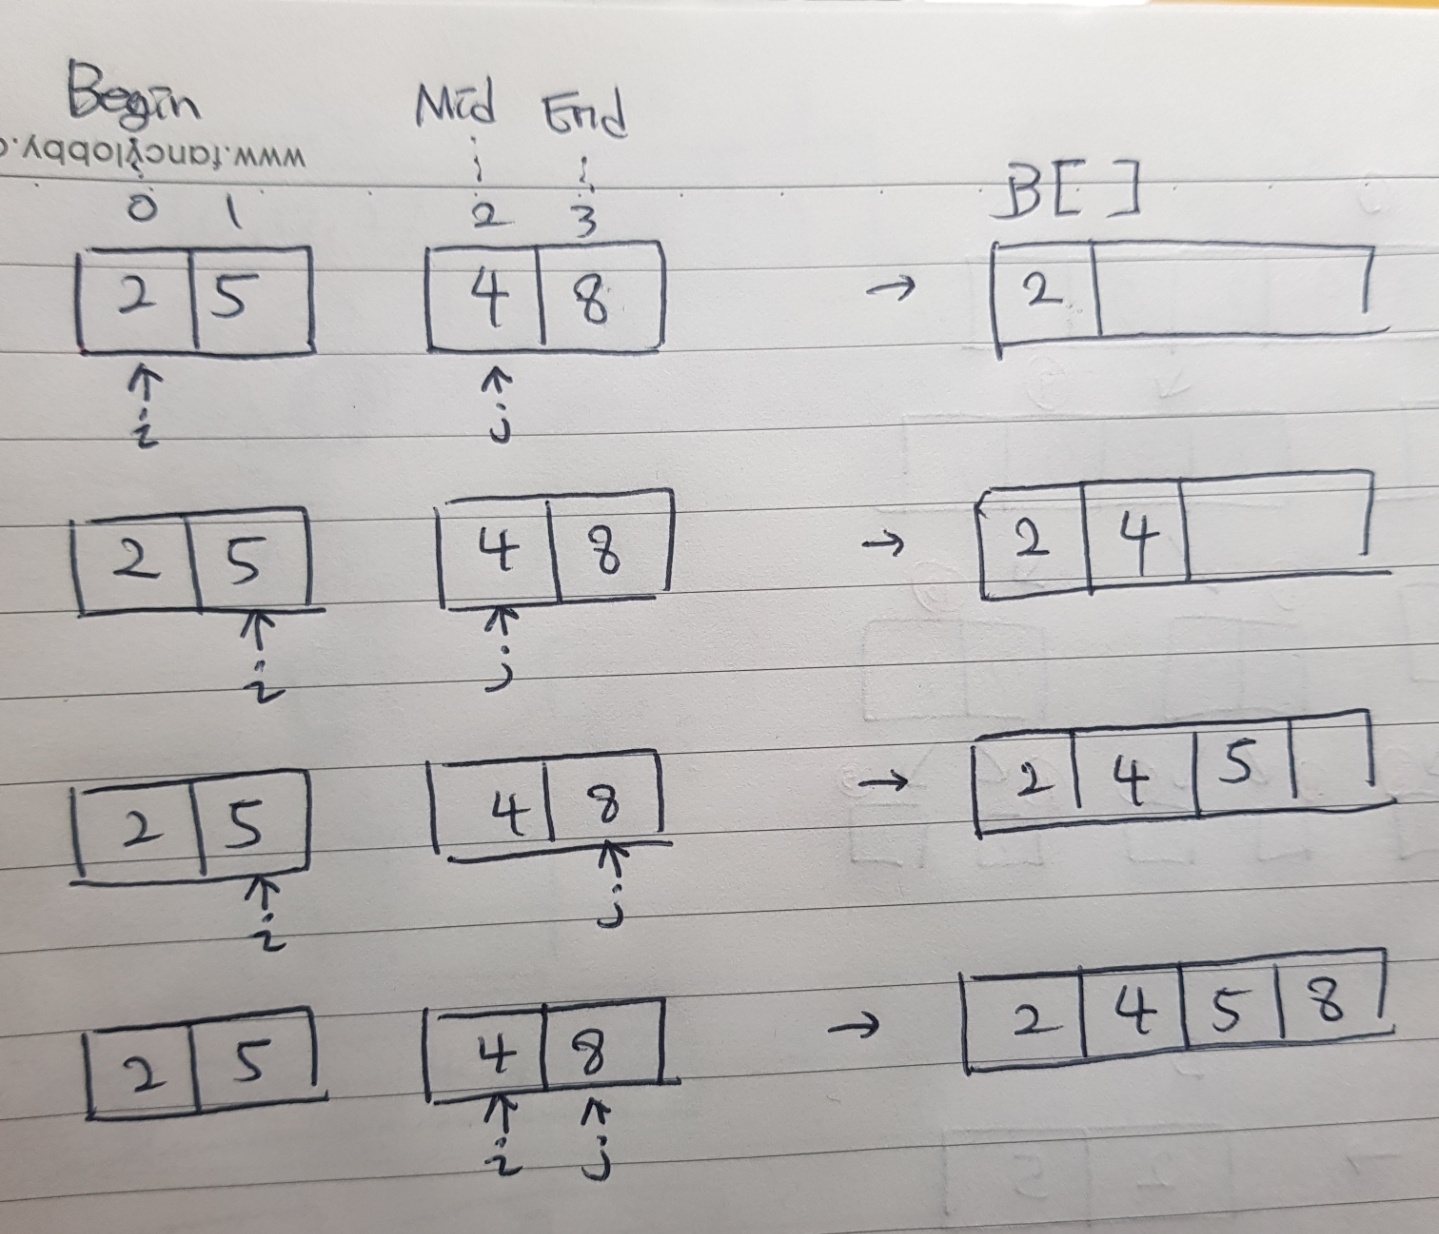 Begin Mid End
www.fancylobby.c
B[ ]
0 1 2 3
2 5 4 8 → 2
↑ ↑
i j
2 5 4 8 → 2 4
↑ ↑
i j
2 5 4 8 → 2 4 5
↑ ↑
i j
2 5 4 8 → 2 4 5 8
↑ ↑
i j